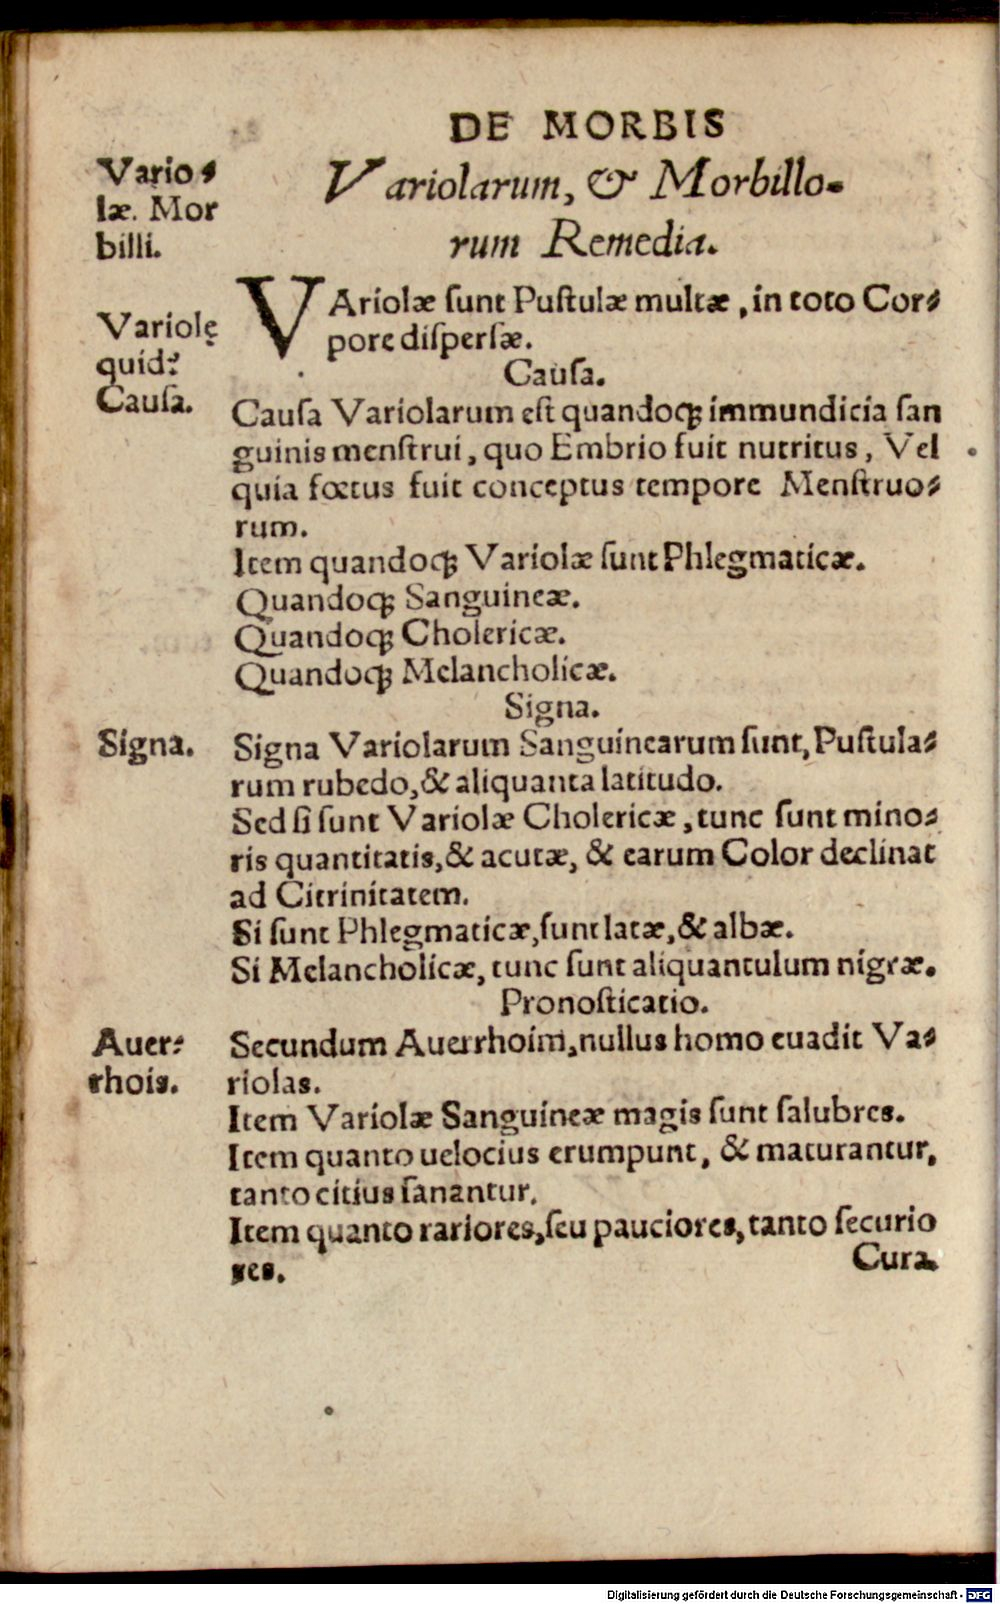 DE MORBIS
Vario⸗
læ. Mor
billi.
Variolarum, & Morbillo-
rum Remedia.
VAriolæ ſunt Puſtulæ multæ, in toto Cor⸗
pore diſperſæ.
Variolę
quid?
Cauſa.
Cauſa.
Cauſa Variolarum eſt quandoq; immundicia ſan
guinis menſtrui, quo Embrio fuit nutritus, Vel
quia fœtus fuit conceptus tempore Menſtruo⸗
rum.
Item quandoq; Variolæ ſunt Phlegmaticæ.
Quandoq; Sanguineæ.
Quandoq; Cholericæ.
Quandoq; Melancholicæ.
Signa.
Signa.
Signa Variolarum Sanguinearum ſunt, Puſtula⸗
rum rubedo, & aliquanta latitudo.
Sed ſi ſunt Variolæ Cholericæ, tunc ſunt mino⸗
ris quantitatis, & acutæ, & earum Color declinat
ad Citrinitatem.
Si ſunt Phlegmaticæ, ſunt latæ, & albæ.
Si Melancholicæ, tunc ſunt aliquantulum nigræ.
Pronoſticatio.
Auer⸗
rhois.
Secundum Auerrhoim, nullus homo euadit Va⸗
riolas.
Item Variolæ Sanguineæ magis ſunt ſalubres.
Item quanto uelocius erumpunt, & maturantur,
tanto citius ſanantur.
Item quanto rariores, ſeu pauciores, tanto ſecurio
res.
Cura.
Digitalisierung gefördert durch die Deutsche Forschungsgemeinschaft - DFG